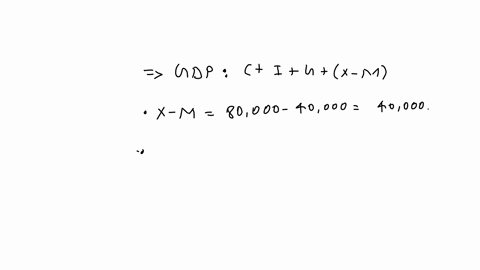 => GDP : C + I + G + (X-M)
• X-M = 80,000 - 40,000 = 40,000.